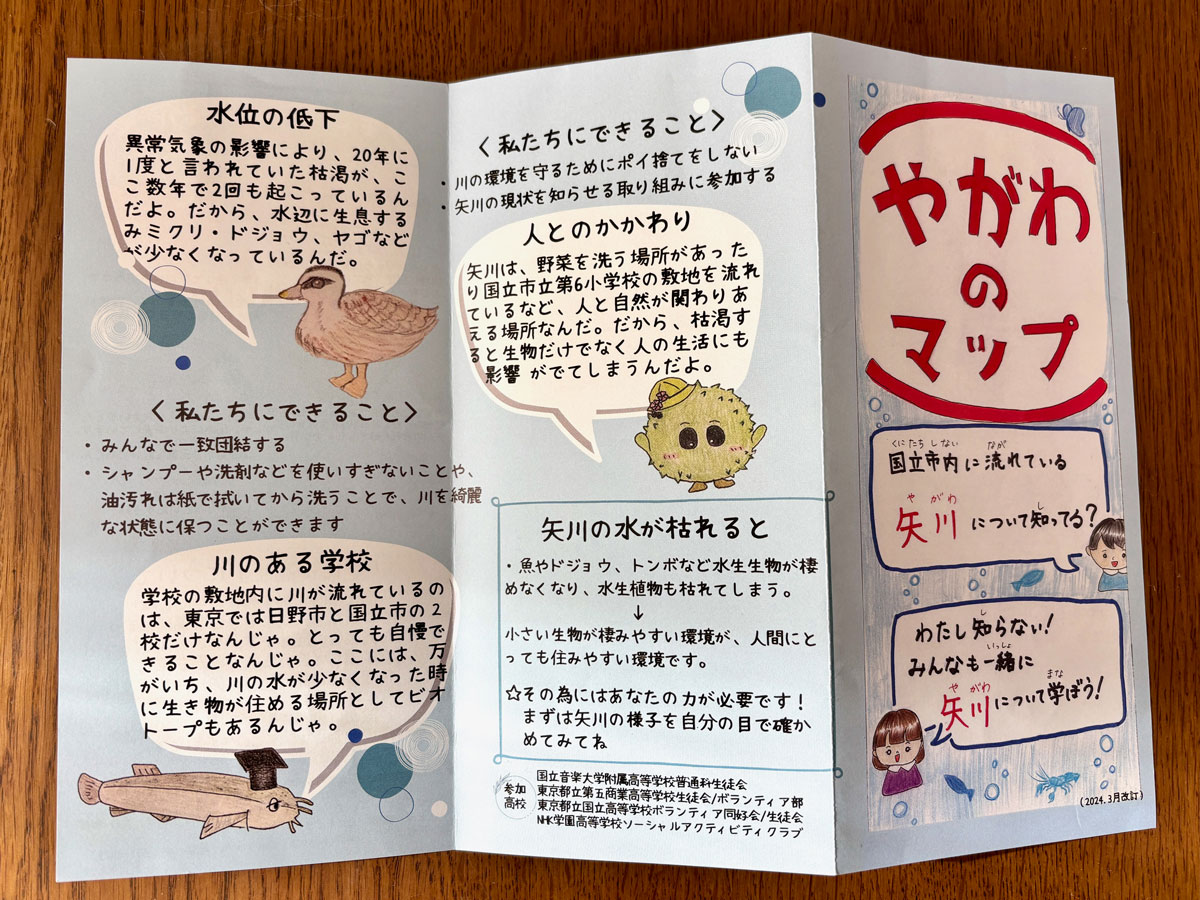 水位の低下
異常気象の影響により、20年に
1度と言われていた枯渇が、こ
こ数年で2回も起こっているん
だよ。だから、水辺に生息する
みミクリ・ドジョウ、ヤゴなど
が少なくなっているんだ。
＜私たちにできること＞
・みんなで一致団結する
・シャンプーや洗剤などを使いすぎないことや、
油汚れは紙で拭いてから洗うことで、川を綺麗
な状態に保つことができます
川のある学校
学校の敷地内に川が流れているの
は、東京では日野市と国立市の2
校だけなんじゃ。とっても自慢で
きることなんじゃ。ここには、万
がいち、川の水が少なくなった時
に生き物が住める場所としてビオ
トープもあるんじゃ。
＜私たちにできること＞
・川の環境を守るためにポイ捨てをしない
・矢川の現状を知らせる取り組みに参加する
人とのかかわり
矢川は、野菜を洗う場所があった
り国立市立第6小学校の敷地を流れ
ているなど、人と自然が関わりあ
える場所なんだ。だから、枯渇す
ると生物だけでなく人の生活にも
影響 がでてしまうんだよ。
矢川の水が枯れると
・魚やドジョウ、トンボなど水生生物が棲
めなくなり、水生植物も枯れてしまう。
↓
小さい生物が棲みやすい環境が、人間にと
っても住みやすい環境です。
☆その為にはあなたの力が必要です！
まずは矢川の様子を自分の目で確か
めてみてね
参加
高校
国立音楽大学附属高等学校普通科生徒会
東京都立第五商業高等学校生徒会/ボランティア部
東京都立国立高等学校ボランティア同好会/生徒会
NHK学園高等学校ソーシャルアクティビティクラブ
やがわ
の
マップ
くにたち しない なが
国立市内に流れている
や がわ し
矢川について知ってる?
し
わたし知らない!
いっしょ
みんなも一緒に
や がわ まな
矢川について学ぼう!
(2024.3月改訂)